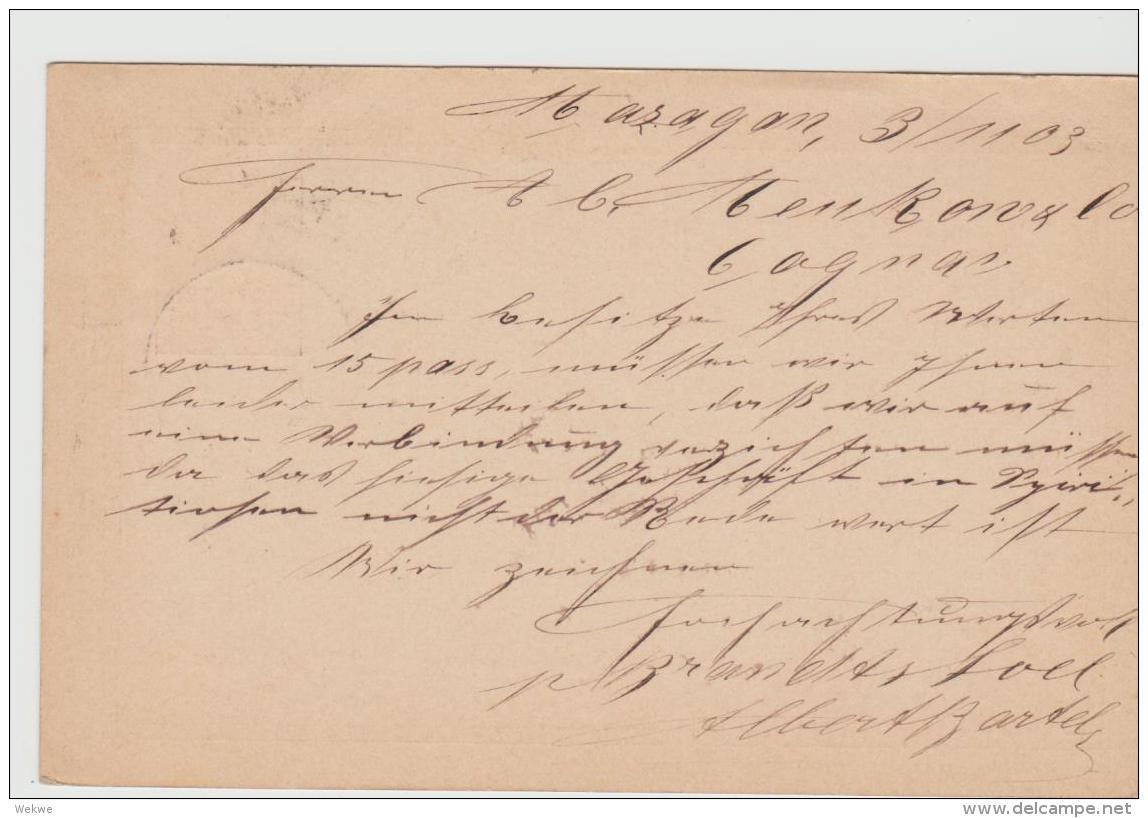 Mazagan, 3/11 03
Herrn A C. Meukow & Co
Cognac
Im Besitze Ihres Werten
vom 15 pass, müssen wir Ihnen
leider mitteilen, daß wir auf
eine Verbindung verzichten müssen
da das hiesige Geschäft in Spiri-
tuosen nicht der Rede wert ist
Wir zeichnen
Hochachtungsvoll
p Brandt & Toel
Albert Bartels
Wekwe
delcampe.net